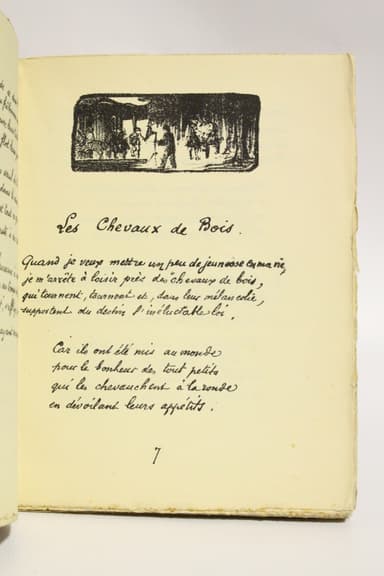 Les Chevaux de Bois.
Quand je veux mettre un peu de jeunesse en ma vie,
je m'arrête à loisir près des chevaux de bois,
qui tournent, tournent et, dans leur mélancolie,
supportent du destin l'inéluctable loi.
Car ils ont été mis au monde
pour le bonheur des tout petits
qui les chevauchent à la ronde
en dévoilant leurs appétits.
7